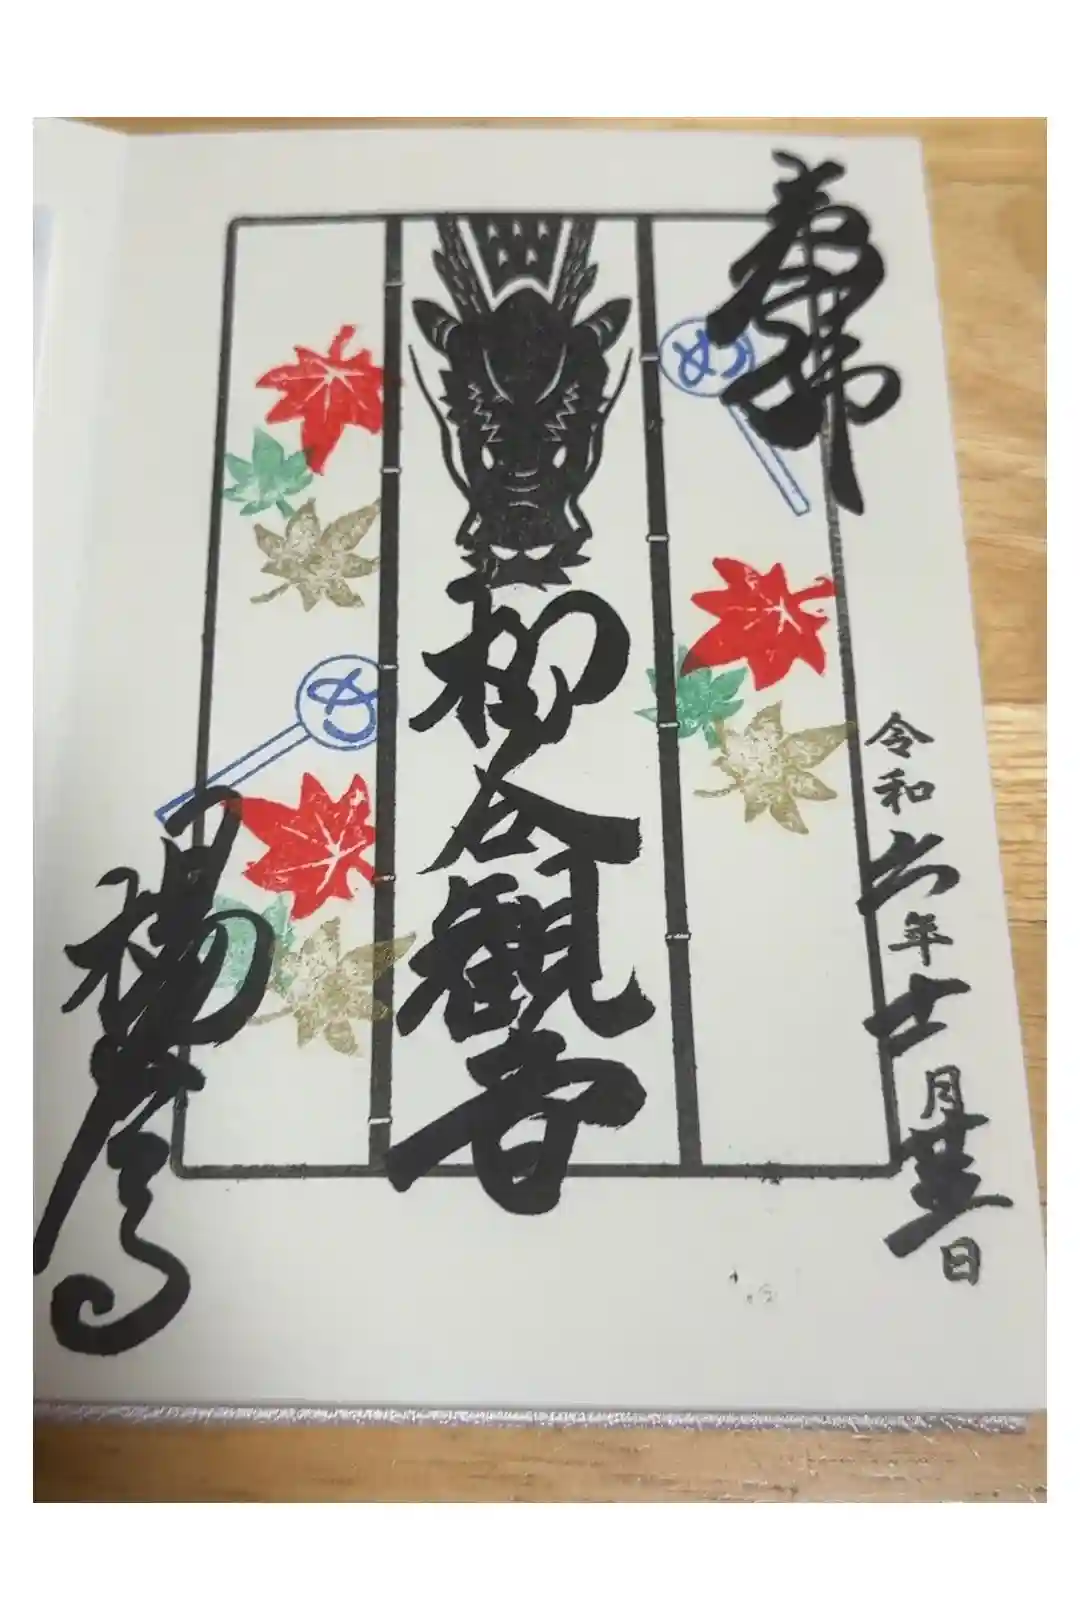 奉拝
令和六年十一月廿三日
め
柳谷観音
め
楊谷寺